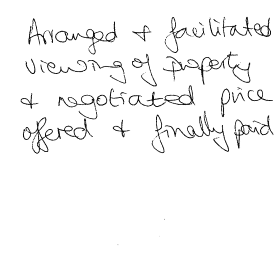 Arranged & facilitated
viewing of property
& negotiated price
offered & finally paid